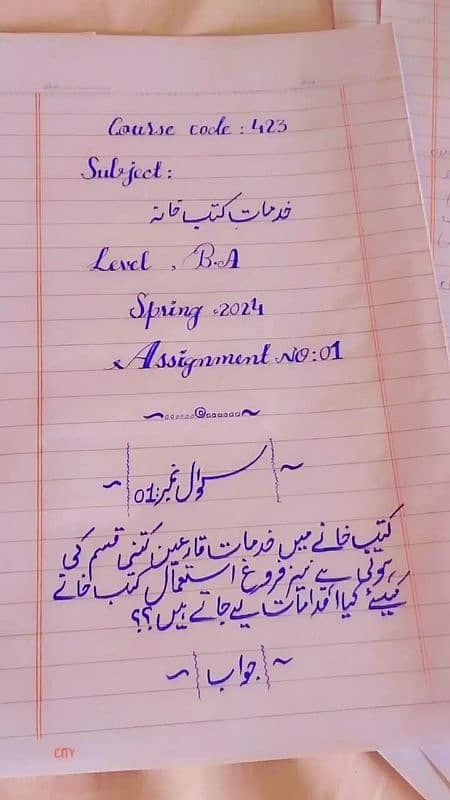 Course code : 423
Subject :
خدماتِ کتب خانہ
Level , B.A
Spring .2024
Assignment NO:01
سوال نمبر:01
کتب خانے میں خدمات قارعین کتنی قسم کی
ہوتی ہے نیز فروغ استعمال کتب خانے
کیلئے کیا اقدامات لیے جاتے ہیں؟؟
جواب
CITY